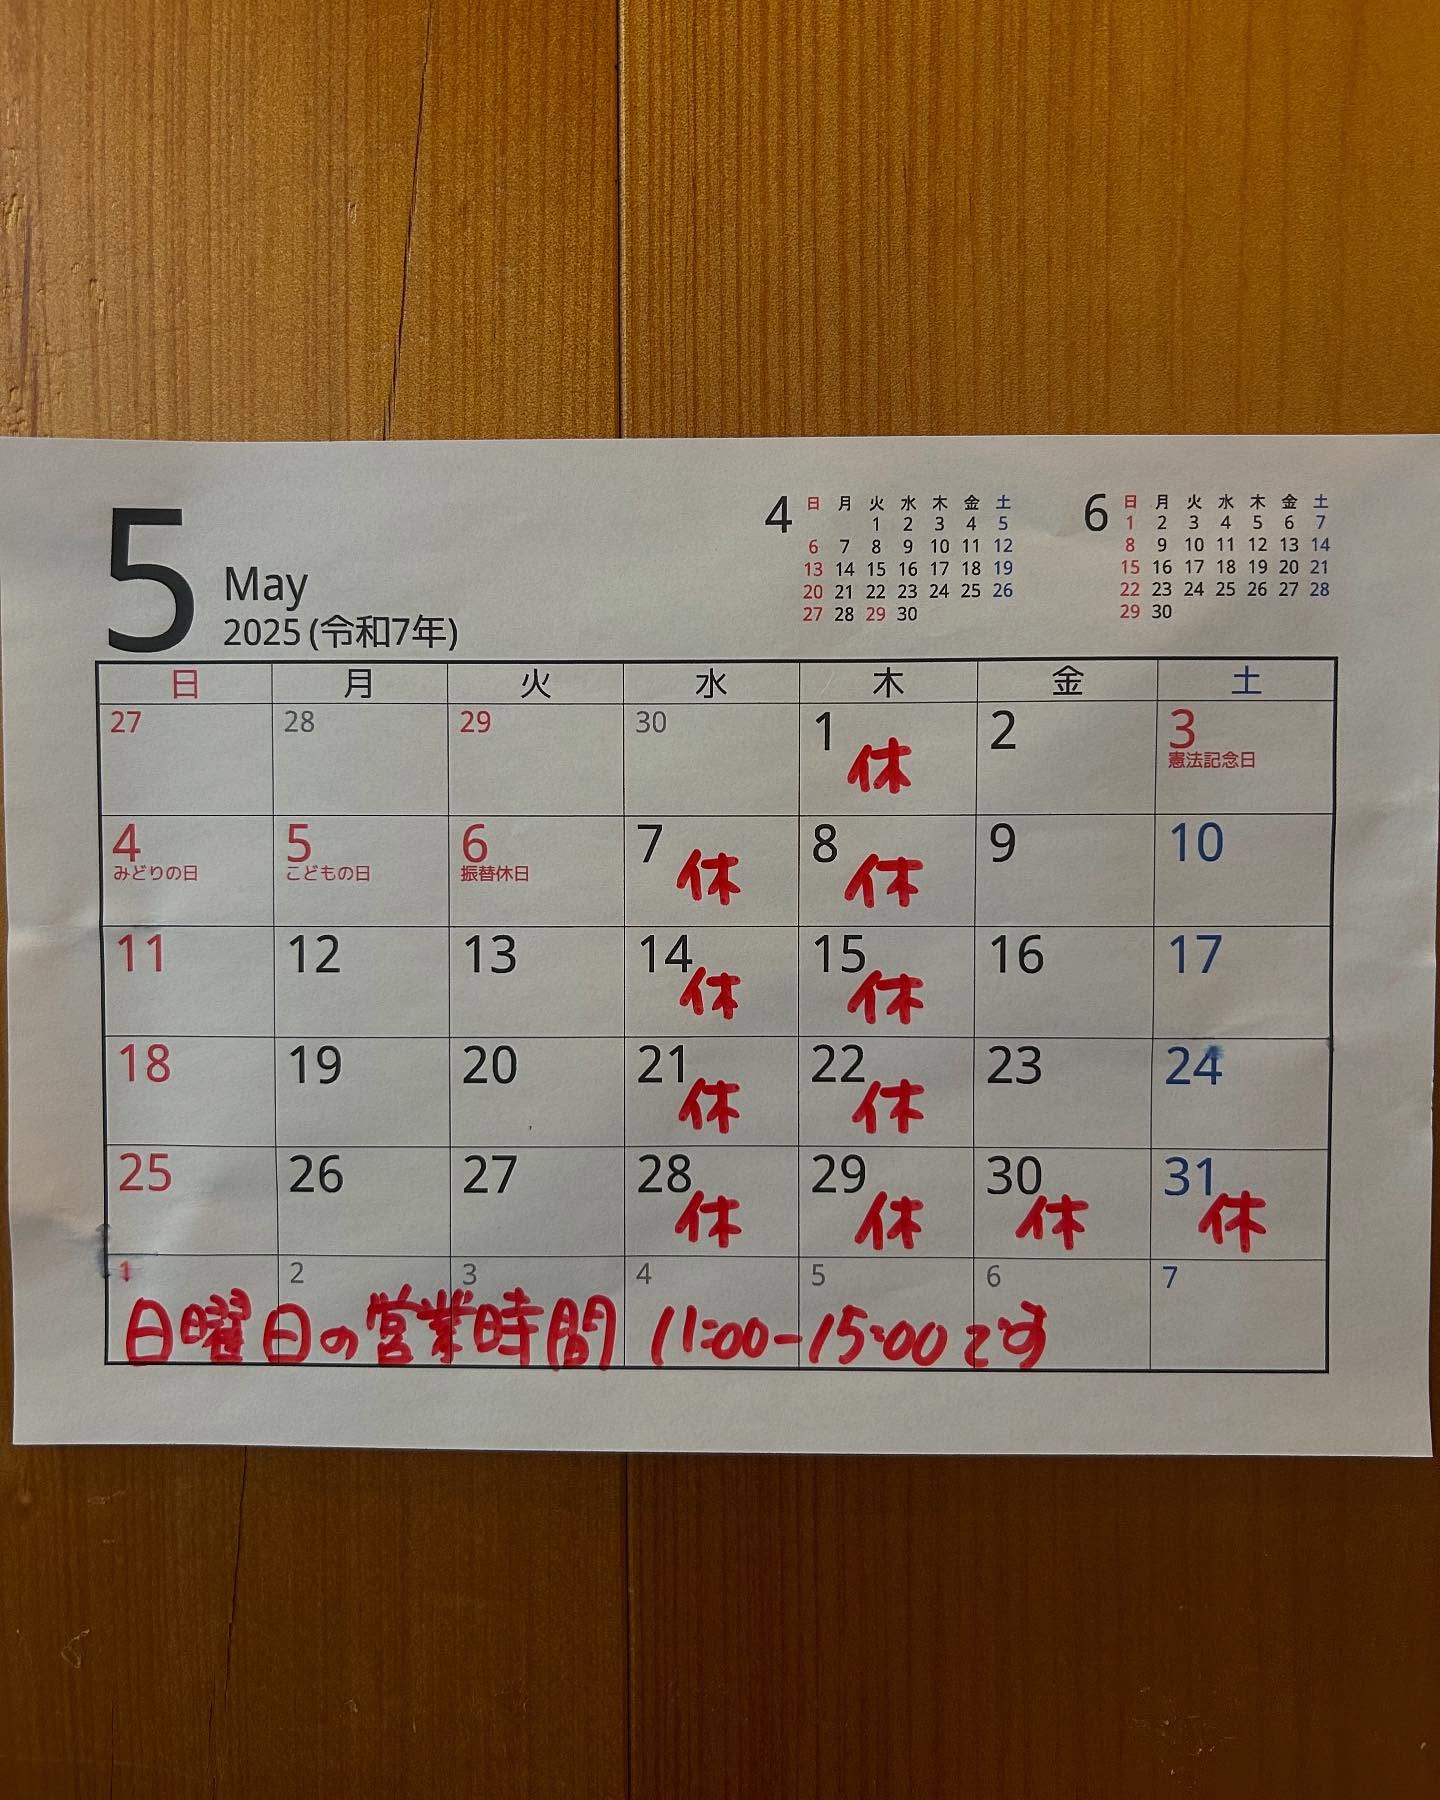 5
May
2025 (令和7年)
4
日 月 火 水 木 金 土
1 2 3 4 5
6 7 8 9 10 11 12
13 14 15 16 17 18 19
20 21 22 23 24 25 26
27 28 29 30
6
日 月 火 水 木 金 土
1 2 3 4 5 6 7
8 9 10 11 12 13 14
15 16 17 18 19 20 21
22 23 24 25 26 27 28
29 30
日 月 火 水 木 金 土
27 28 29 30 1 2 3
休
憲法記念日
4 5 6 7 8 9 10
みどりの日 こどもの日 振替休日 休 休
11 12 13 14 15 16 17
休 休
18 19 20 21 22 23 24
休 休
25 26 27 28 29 30 31
休 休 休 休
1 2 3 4 5 6 7
日曜日の営業時間 11:00-15:00です